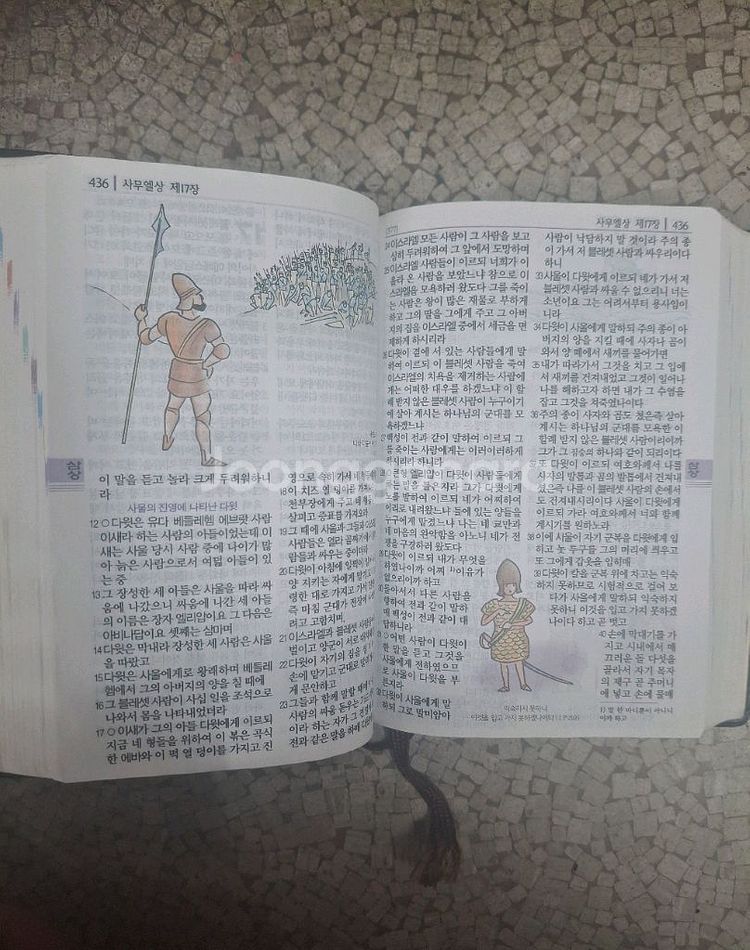 436 | 사무엘상 제17장
삼상
이 말을 듣고 놀라 크게 두려워하니
라
사울의 진영에 나타난 다윗
12 ○다윗은 유다 베들레헴 에브랏 사람
이새라 하는 사람의 아들이었는데 이
새는 사울 당시 사람 중에 나이가 많
아 늙은 사람으로서 여덟 아들이 있
는 중
13 그 장성한 세 아들은 사울을 따라 싸
움에 나갔으니 싸움에 나간 세 아들
의 이름은 장자 엘리압이요 그 다음은
아비나답이요 셋째는 삼마며
14 다윗은 막내라 장성한 세 사람은 사울
을 따랐고
15 다윗은 사울에게로 왕래하며 베들레
헴에서 그의 아버지의 양을 칠 때에
16 그 블레셋 사람이 사십 일을 조석으로
나와서 몸을 나타내었더라
17 ○이새가 그의 아들 다윗에게 이르되
지금 네 형들을 위하여 이 볶은 곡식
한 에바와 이 떡 열 덩이를 가지고 진
영으로 속히 가서
18 이 치즈 열 덩이를
천부장에게 주고
살피고 증표를 가져오라
19 그 때에 사울과 그들과
사람들은 엘라 골짜기에서
람들과 싸우는 중이더라
20 다윗이 아침에 일찍이
양 지키는 자에게 맡기고
령한 대로 가지고 가서
즉 마침 군대가 전장에
려고 고함치며,
21 이스라엘과 블레셋 사람들이
벌이고 양군이 서로
22 다윗이 자기의 짐을
손에 맡기고 군대로
게 문안하고
23 그들과 함께 말할 때에
사람의 싸움 돋우는
이라 하는 자가 그
전과 같은 말을 하매
사무엘상 제17장 | 436
24 이스라엘 모든 사람이 그 사람을 보고
심히 두려워하여 그 앞에서 도망하며
25 이스라엘 사람들이 이르되 너희가 이
올라 온 사람을 보았느냐 참으로 이
스라엘을 모욕하러 왔도다 그를 죽이
는 사람은 왕이 많은 재물로 부하게
하고 그의 딸을 그에게 주고 그 아버
지의 집을 이스라엘 중에서 세금을 면
제하게 하시리라
26 다윗이 곁에 서 있는 사람들에게 말
하여 이르되 이 블레셋 사람을 죽여
이스라엘의 치욕을 제거하는 사람에
게는 어떠한 대우를 하겠느냐 이 할
례 받지 않은 블레셋 사람이 누구이기
에 살아 계시는 하나님의 군대를 모
욕하겠느냐
백성이 전과 같이 말하여 이르되 그
를 죽이는 사람에게는 이러이러하게
하시리라 하니라
큰형 엘리압이 다윗이 사람들에게
하는 말을 들은지라 그가 다윗에게
노를 발하여 이르되 네가 어찌하여
이리로 내려왔느냐 들에 있는 양들을
누구에게 맡겼느냐 나는 네 교만과
네 마음의 완악함을 아노니 네가 전
쟁을 구경하러 왔도다
다윗이 이르되 내가 무엇을
하였나이까 어찌 이유가
없으리이까 하고
돌아서서 다른 사람을
향하여 전과 같이 말하
매 백성이 전과 같이 대
답하니라
○어떤 사람이 다윗이
한 말을 듣고 그것을
사울에게 전하였으므
로 사울이 다윗을 부
른지라
다윗이 사울에게 말
하되 그로 말미암아
사람이 낙담하지 말 것이라 주의 종
이 가서 저 블레셋 사람과 싸우리이다
하니
33 사울이 다윗에게 이르되 네가 가서 저
블레셋 사람과 싸울 수 없으리니 너는
소년이요 그는 어려서부터 용사임이
니라
34 다윗이 사울에게 말하되 주의 종이 아
버지의 양을 지킬 때에 사자나 곰이
와서 양 떼에서 새끼를 물어가면
35 내가 따라가서 그것을 치고 그 입에
서 새끼를 건져내었고 그것이 일어나
나를 해하고자 하면 내가 그 수염을
잡고 그것을 쳐죽였나이다
36 주의 종이 사자와 곰도 쳤은즉 살아
계시는 하나님의 군대를 모욕한 이
할례 받지 않은 블레셋 사람이리이까
그가 그 짐승의 하나와 같이 되리이다
또 다윗이 이르되 여호와께서 나를
사자의 발톱과 곰의 발톱에서 건져내
셨은즉 나를 이 블레셋 사람의 손에서
도 건져내시리이다 사울이 다윗에게
이르되 가라 여호와께서 너와 함께
계시기를 원하노라
38 이에 사울이 자기 군복을 다윗에게 입
히고 놋 투구를 그의 머리에 씌우고
또 그에게 갑옷을 입히매
39 다윗이 칼을 군복 위에 차고는 익숙
하지 못하므로 시험적으로 걸어 보
다가 사울에게 말하되 익숙하지
못하니 이것을 입고 가지 못하겠
나이다 하고 곧 벗고
40 손에 막대기를 가
지고 시내에서 매
끄러운 돌 다섯을
골라서 자기 목자
의 제구 곧 주머니
에 넣고 손에 물매
익숙하지 못하니
이것을 입고 가지 못하겠나이다
삼상